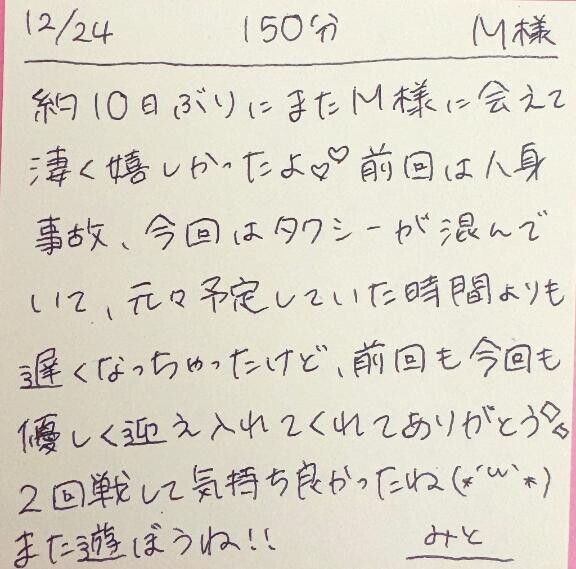 12/24 150分 M様
約10日ぶりにまたM様に会えて
凄く嬉しかったよ♡♡ 前回は人身
事故、今回はタクシーが混んで
いて、元々予定していた時間よりも
遅くなっちゃったけど、前回も今回も
優しく迎え入れてくれてありがとう◇◇
2回戦して気持ち良かったね(*´ω`*)
また遊ぼうね!! みと